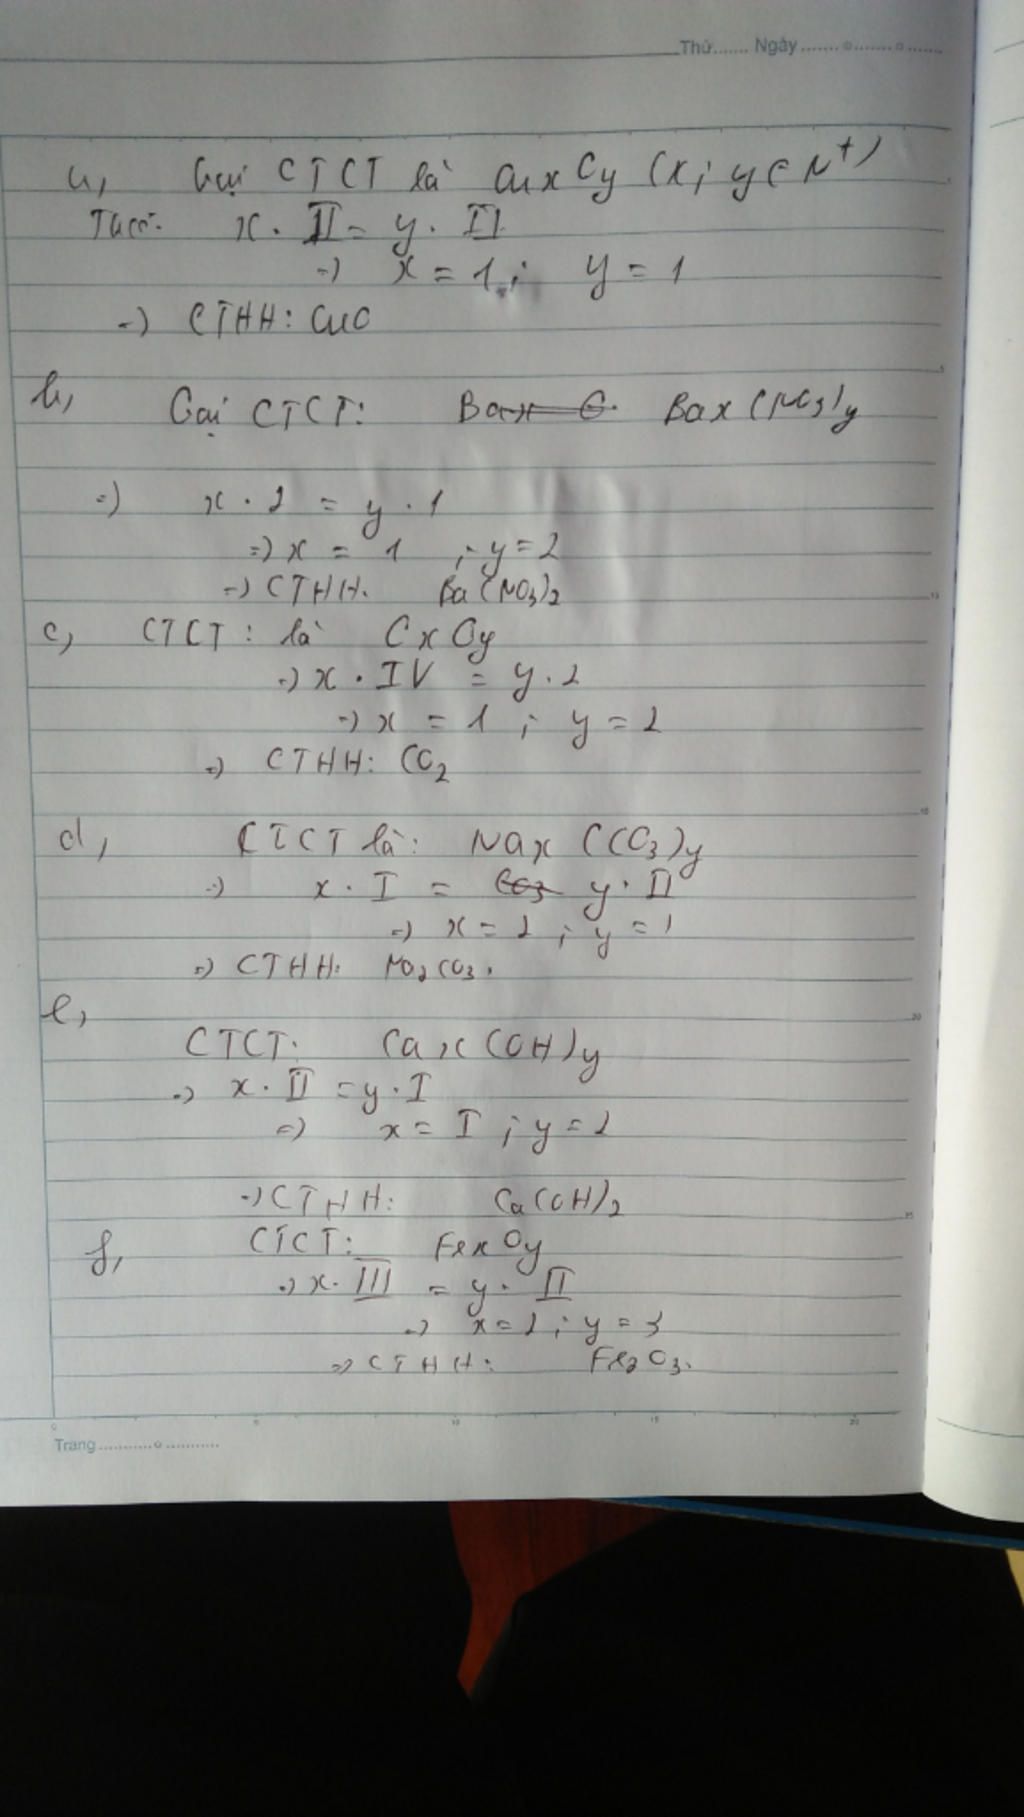 Thứ....... Ngày ....... o ....... o .......
a, Gọi CTCT là CuxOy (x; y ∈ N+)
x . II = y . II
=> x = 1 ; y = 1
=> CTHH: CuO
b,
Gọi CTCT: Bax(NO3)y
=> x . 2 = y . 1
=> x = 1 ; y = 2
=> CTHH: Ba(NO3)2
c, CTCT: là CxOy
=> x . IV = y . 2
=> x = 1 ; y = 2
=> CTHH: CO2
d, CTCT là: Nax(CO3)y
=> x . I = y . II
=> x = 2 ; y = 1
=> CTHH: Na2CO3.
e,
CTCT: Cax(OH)y
=> x . II = y . I
=> x = I ; y = 2
=> CTHH: Ca(OH)2
f, CTCT: FexOy
=> x . III = y . II
=> x = 2 ; y = 3
=> CTHH: Fe2O3.
Trang ........... o ...........